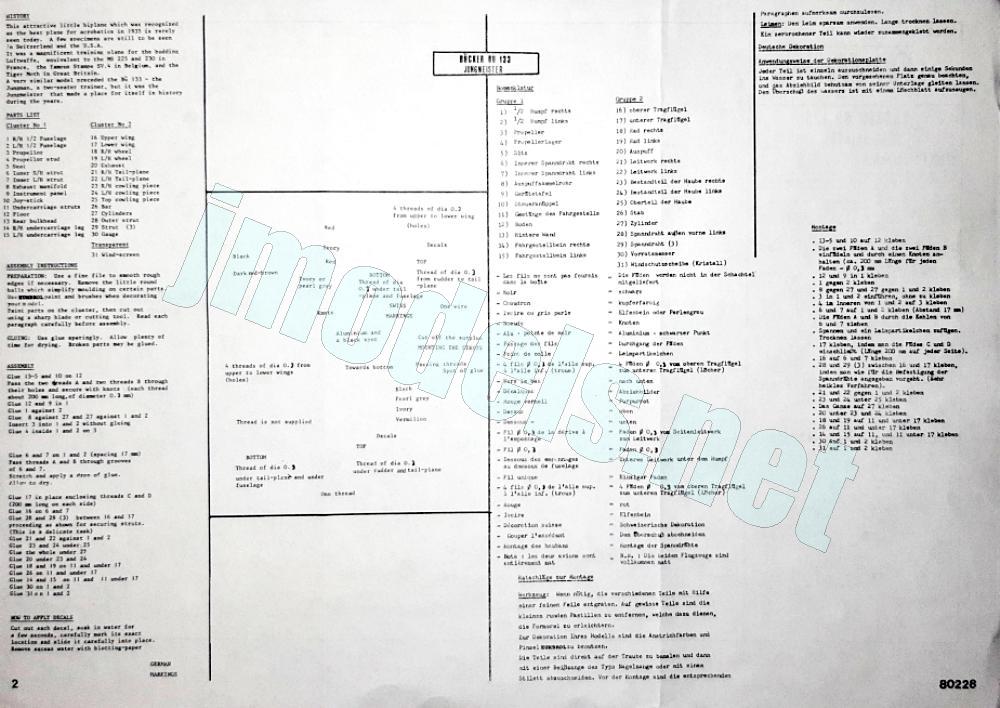 HISTORY
This attractive little biplane which was recognized
as the best plane for acrobation in 1935 is rarely
seen today. A few specimens are still to be seen
in Switzerland and the U.S.A.
It was a magnificent training plane for the budding
Luftwaffe, equivalent to the MS 225 and 230 in
France, the famous Stampe SV.4 in Belgium, and the
Tiger Moth in Great Britain.
A very similar model preceded the BG 133 - the
Jungman, a two-seater trainer, but it was the
Jungmeister that made a place for itself in history
during the years.
PARTS LIST
Cluster No 1
1 R/H 1/2 Fuselage
2 L/H 1/2 Fuselage
3 Propeller
4 Propeller stud
5 Seat
6 Inner R/H strut
7 Inner L/H strut
8 Exhaust manifold
9 Instrument panel
10 Joy-stick
11 Undercarriage struts
12 Floor
13 Rear bulkhead
14 R/H undercarriage leg
15 L/H undercarriage leg
Cluster No 2
16 Upper wing
17 Lower wing
18 R/H wheel
19 L/H wheel
20 Exhaust
21 R/H Tail-plane
22 L/H Tail-plane
23 R/H cowling piece
24 L/H cowling piece
25 Top cowling piece
26 Bar
27 Cylinders
28 Outer strut
29 Strut (3)
30 Gauge
Transparent
31 Wind-screen
ASSEMBLY INSTRUCTIONS
PREPARATION: Use a fine file to smooth rough
edges if necessary. Remove the little round
balls which simplify moulding on certain parts.
Use HUMBROL paint and brushes when decorating
your model.
Paint parts on the cluster, then cut out
using a sharp blade or cutting tool. Read each
paragraph carefully before assembly.
GLUING: Use glue sparingly. Allow plenty of
time for drying. Broken parts may be glued.
ASSEMBLY
Glue 13-5 and 10 on 12
Pass the two threads A and two threads B through
their holes and secure with knots (each thread
about 200 mm long, of diameter 0.3 mm)
Glue 12 and 9 in 1
Glue 1 against 2
Glue 8 against 27 and 27 against 1 and 2
Insert 3 into 1 and 2 without gluing
Glue 4 inside 1 and 2 on 3
Glue 6 and 7 on 1 and 2 (spacing 17 mm)
Pass threads A and B through grooves
of 6 and 7.
Stretch and apply a drop of glue.
Allow to dry.
Glue 17 in place enclosing threads C and D
(200 mm long on each side)
Glue 16 on 6 and 7
Glue 28 and 29 (3) between 16 and 17
proceeding as shown for securing struts.
(This is a delicate task)
Glue 21 and 22 against 1 and 2
Glue 23 and 24 under 25
Glue the whole under 27
Glue 20 under 23 and 24
Glue 18 and 19 on 11 and under 17
Glue 26 on 11 and under 17
Glue 14 and 15 on 11 and 11 under 17
Glue 30 on 1 and 2
Glue 31 on 1 and 2
HOW TO APPLY DECALS
Cut out each decal, soak in water for
a few seconds, carefully mark its exact
location and slide it carefully into place.
Remove excess water with blotting-paper
GERMAN
MARKINGS
2
4 threads of dia 0.3
from upper to lower wing
(holes)
Red
Ivory
Decals
Black
Red
Dark red-brown
Ivory or
pearl grey
BOTTOM
Thread of dia
0.3 under tail
-plane and fuselage
TOP
Thread of dia 0.3
from rudder to tail
-plane
SWISS
MARKINGS
One wire
Knots
Aluminium and
a black spot
Cut off the surplus
MOUNTING THE STRUTS
4 threads of dia 0.3 from
upper to lower wings
(holes)
Towards bottom
Passing threads
Spot of glue
Black
Pearl grey
Ivory
Vermilion
Thread is not supplied
Decals
TOP
BOTTOM
Thread of dia 0.3
under tail-plane and under
fuselage
Thread of dia 0.3
under rudder and tail-plane
One thread
BÜCKER BU 133
JUNGMEISTER
Nomenklatur
Gruppe 1
1) 1/2 Rumpf rechts
2) 1/2 Rumpf links
3) Propeller
4) Propellerlager
5) Sitz
6) Innerer Spanndraht rechts
7) Innerer Spanndraht links
8) Auspuffsammelrohr
9) Gerätetafel
10) Steuerknüppel
11) Gestänge des Fahrgestells
12) Boden
13) Hintere Wand
14) Fahrgestellbein rechts
15) Fahrgestellbein links
Gruppe 2
16) oberer Tragflügel
17) unterer Tragflügel
18) Rad rechts
19) Rad links
20) Auspuff
21) Leitwerk rechts
22) Leitwerk links
23) Bestandteil der Haube rechts
24) Bestandteil der Haube links
25) Oberteil der Haube
26) Stab
27) Zylinder
28) Spanndraht außen vorne links
29) Spanndraht (3)
30) Vorratsmesser
31) Windschutzscheibe (Kristall)
- Les fils ne sont pas fournis
dans la boîte
= Die Fäden werden nicht in der Schachtel
mitgeliefert
- Noir = schwarz
- Chaudron = kupferfarbig
- Ivoire ou gris perle = Elfenbein oder Perlengrau
- Noeuds = Knoten
- Alu - pointe de noir = Aluminium - schwarzer Punkt
- Passage des fils = Durchgang der Fäden
- Point de colle = Leimpartikelchen
- 4 fils Ø 0,3 de l'aile sup.
à l'aile inf. (trous)
= 4 Fäden Ø 0,3 vom oberen Tragflügel
zum unteren Tragflügel (Löcher)
- Vers le bas = nach unten
- Décalques = Abziehbilder
- Rouge vermeil = Purpurrot
- Dessus = oben
- Dessous = unten
- Fil Ø 0,3 de la dérive à
l'empennage
= Faden Ø 0,3 vom Seitenleitwerk
zum Leitwerk
- Fil Ø 0,3 = Faden Ø 0,3
- Dessous des empennages
au dessous de fuselage
= Unteres Leitwerk unter dem Rumpf
- Fil unique = Einziger Faden
- 4 fils Ø 0,3 de l'aile sup.
à l'aile inf. (trous)
= 4 Fäden Ø 0,3 vom oberen Tragflügel
zum unteren Tragflügel (Löcher)
- Rouge = rot
- Ivoire = Elfenbein
- Décoration suisse = Schweizerische Dekoration
- Couper l'excédent = Den Überschuß abschneiden
- Montage des haubans = Montage der Spanndrähte
- Nota : les deux avions sont
entièrement mat
= N.B. : Die beiden Flugzeuge sind
vollkommen matt
Ratschläge zur Montage
Werkzeug: Wenn nötig, die verschiedenen Teile mit Hilfe
einer feinen Feile entgraten. Auf gewisse Teile sind die
kleinen runden Pastillen zu entfernen, welche dazu dienen,
die Formerei zu erleichtern.
Zur Dekoration Ihres Modells sind die Anstrichfarben und
Pinsel HUMBROL zu benutzen.
Die Teile sind direkt auf der Traube zu bemalen und dann
mit einer Beißzange des Typs Nagelzange oder mit einem
Stilett abzuschneiden. Vor der Montage sind die entsprechenden
Paragraphen aufmerksam durchzulesen.
Leimen: Den Leim sparsam anwenden. Lange trocknen lassen.
Ein zerbrochener Teil kann wieder zusammengeklebt werden.
Deutsche Dekoration
Anwendungsweise der Dekorationsplatte
Jeder Teil ist einzeln auszuschneiden und dann einige Sekunden
ins Wasser zu tauchen. Den vorgesehenen Platz genau beachten,
und das Abziehbild behutsam von seiner Unterlage gleiten lassen.
Den Überschuß des Wassers ist mit einem Löschblatt aufzusaugen.
Montage
- 13-5 und 10 auf 12 kleben
- Die zwei Fäden A und die zwei Fäden B
einfädeln und durch einen Knoten an-
halten (ca. 200 mm Länge für jeden
Faden - Ø 0,3 mm
- 12 und 9 in 1 kleben
- 1 gegen 2 kleben
- 8 gegen 27 und 27 gegen 1 und 2 kleben
- 3 in 1 und 2 einführen, ohne zu kleben
- 4 im Inneren von 1 und 2 auf 3 kleben
- 6 und 7 auf 1 und 2 kleben (Abstand 17 mm)
- Die Fäden A und B durch die Kehlen von
6 und 7 ziehen
- Spannen und ein Leimpartikelchen zufügen.
Trocknen lassen
- 17 kleben, indem man die Fäden C und D
einschließt (Länge 200 mm auf jeder Seite).
- 16 auf 6 und 7 kleben
- 28 und 29 (3) zwischen 16 und 17 kleben,
indem man wie für die Befestigung der
Spanndrähte angegeben vorgeht. (Sehr
heikles Verfahren).
- 21 und 22 gegen 1 und 2 kleben
- 23 und 24 unter 25 kleben
- Das Ganze auf 27 kleben
- 20 unter 23 und 24 kleben
- 18 und 19 auf 11 und unter 17 kleben
- 26 auf 11 und unter 17 kleben
- 14 und 15 auf 11, und 11 unter 17 kleben
- 30 auf 1 und 2 kleben
- 31 auf 1 und 2 kleben
80228
imodels.net